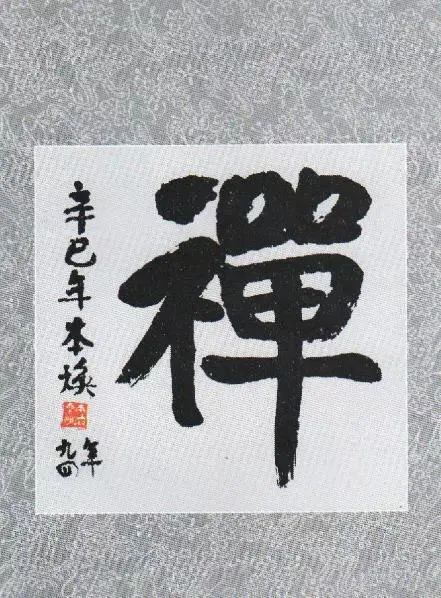 禪
辛巳年本焕
年九四